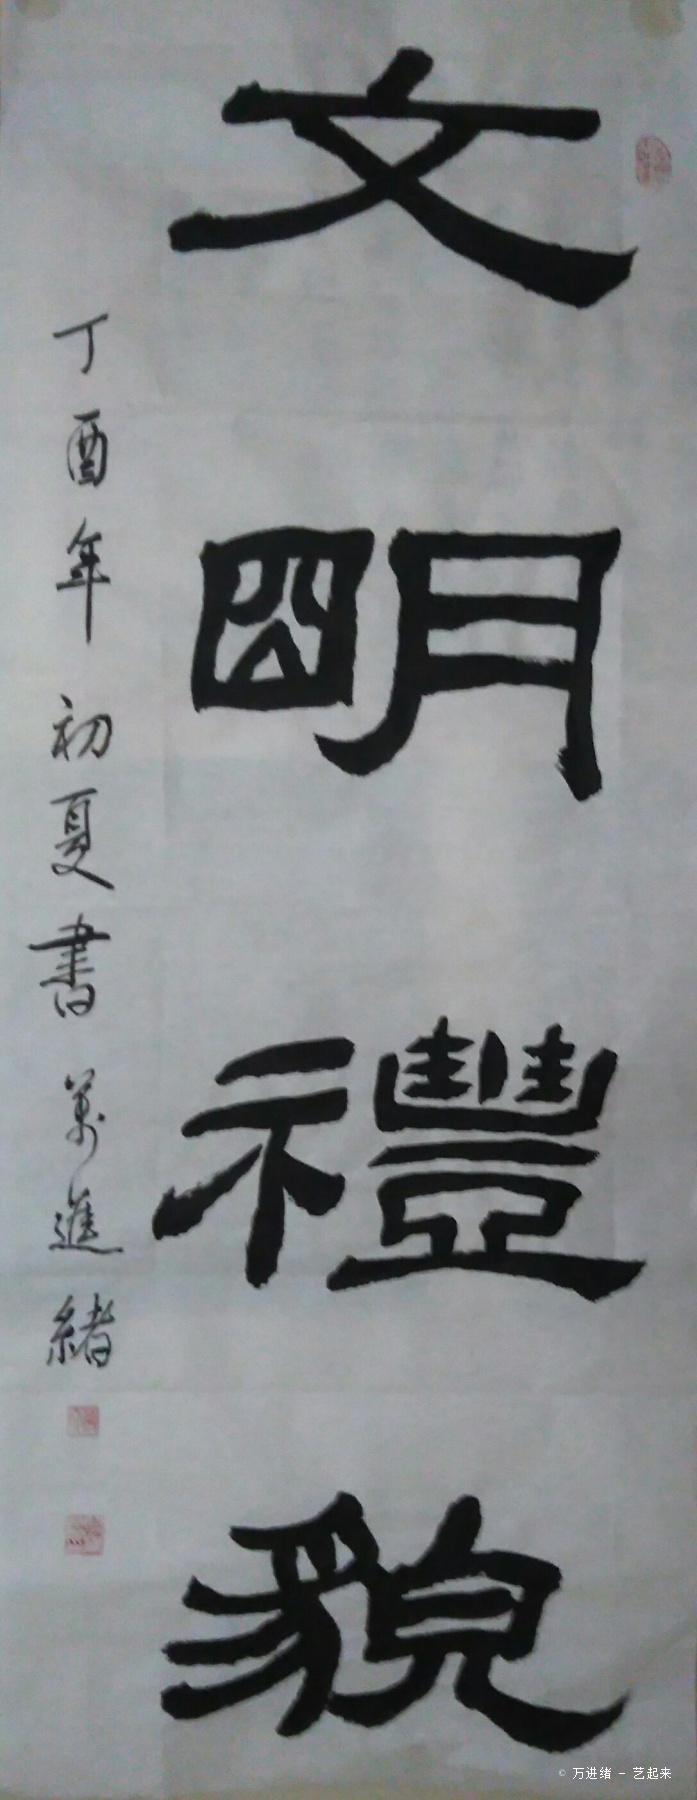 文明禮貌
丁酉年初夏書萬進緒
© 万进绪 - 艺起来